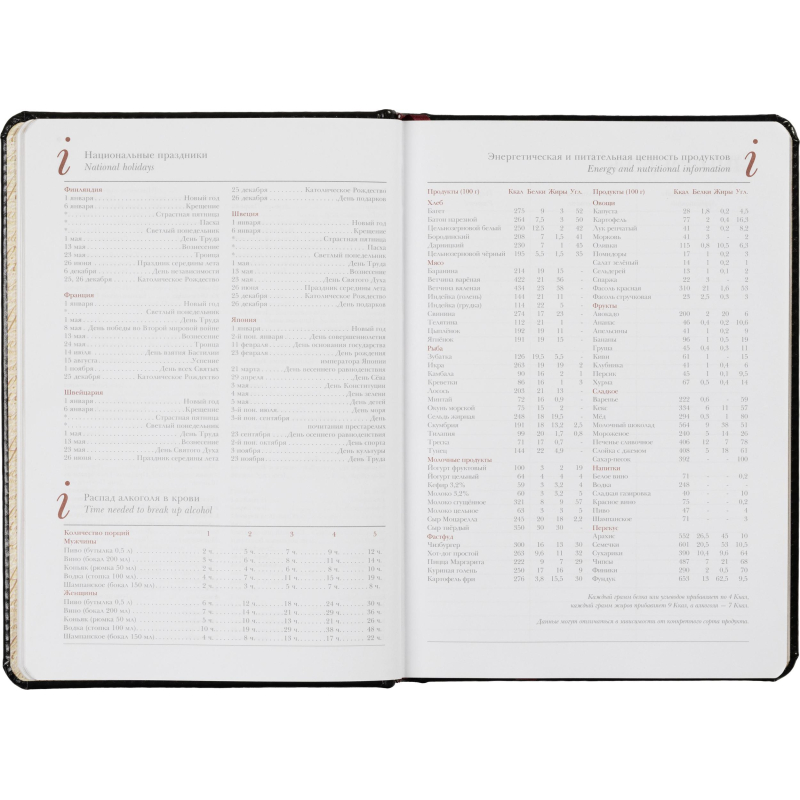 Национальные праздники
National holidays
Финляндия
1 января Новый год
6 января Крещение
* Страстная пятница
* Пасха
* Светлый понедельник
1 мая День Труда
13 мая Вознесение
23 мая Троица
26 июня Праздник середины лета
6 декабря День независимости
25, 26 декабря Католическое Рождество
Франция
1 января Новый год
* Светлый понедельник
1 мая День Труда
8 мая День победы во Второй мировой войне
13 мая Вознесение
24 мая Троица
14 июля День взятия Бастилии
15 августа Успение
1 ноября День всех Святых
25 декабря Католическое Рождество
Швейцария
1 января Новый год
6 января Крещение
* Страстная пятница
* Светлый понедельник
1 мая День Труда
13 мая Вознесение
23 мая День Святого Духа
26 июня Праздник середины лета
25 декабря Католическое Рождество
26 декабря День подарков
Швеция
1 января Новый год
6 января Крещение
* Страстная пятница
* Светлый понедельник
1 мая День Труда
13 мая Вознесение
23 мая День Святого Духа
26 июня Праздник середины лета
25 декабря Католическое Рождество
26 декабря День подарков
Япония
1 января Новый год
2-й пон. января День совершеннолетия
11 февраля День основания государства
23 февраля День рождения
императора Японии
29 апреля День Сёва
3 мая День Конституции
4 мая День зелени
5 мая День детей
3-й пон. июля День моря
3-й пон. сентября День
почитания престарелых
23 сентября День осеннего равноденствия
2-й пон. октября День спорта
3 ноября День культуры
23 ноября День Труда
Распад алкоголя в крови
Time needed to break up alcohol
Количество порций 1 2 3 4 5
Мужчины
Пиво (бутылка 0,5 л) 2 ч. 5 ч. 7 ч. 9 ч. 12 ч.
Вино (бокал 200 мл) 3 ч. 6 ч. 8 ч. 11 ч. 14 ч.
Коньяк (рюмка 50 мл) 2 ч. 4 ч. 6 ч. 8 ч. 10 ч.
Водка (стопка 100 мл) 4 ч. 7 ч. 11 ч. 15 ч. 19 ч.
Шампанское (бокал 150 мл) 2 ч. 3 ч. 5 ч. 7 ч. 8 ч.
Женщины
Пиво (бутылка 0,5 л) 6 ч. 12 ч. 18 ч. 24 ч. 30 ч.
Вино (бокал 200 мл) 7 ч. 14 ч. 22 ч. 29 ч. 36 ч.
Коньяк (рюмка 50 мл) 5 ч. 10 ч. 13 ч. 21 ч. 26 ч.
Водка (стопка 100 мл) 10 ч. 19 ч. 29 ч. 38 ч. 48 ч.
Шампанское (бокал 150 мл) 4 ч. 8 ч. 13 ч. 17 ч. 22 ч.
Энергетическая и питательная ценность продуктов
Energy and nutritional information
Продукты (100 г) Ккал Белки Жиры Угл.
Хлеб
Багет 273 9 3 52
Батон нарезной 264 7,5 3 50
Целнозерновой белый 250 12,5 2 42
Бородинский 208 7 1,5 41
Дарницкий 230 7 1 45
Целнозерновой чёрный 195 5,5 1,5 35
Мясо
Баранина 214 19 15 -
Ветчина варёная 422 21 36 -
Ветчина вяленая 434 23 38 -
Индейка (голень) 144 21 11 -
Индейка (грудка) 114 22 3 -
Свинина 274 17 23 -
Телятина 112 21 1 -
Цыплёнок 192 19 11 -
Ягнёнок 191 19 15 -
Рыба
Зубатка 126 19,5 5,5 -
Икра 263 19 19 2
Камбала 90 16 2 1
Креветки 86 16 1 3
Лосось 203 21 13 -
Минтай 72 16 0,9 -
Окунь морской 75 15 2 -
Сельдь жирная 248 18 19,5 -
Скумбрия 191 18 13,2 2,5
Тилапия 90 20 1,7 0,8
Треска 71 17 0,7 -
Тунец 144 22 4,9 -
Молочные продукты
Йогурт фруктовый 100 3 2 19
Йогурт цельный 64 4 4 4
Кефир 3,2% 59 3 3,2 4
Молоко 3,2% 60 3 3,2 5
Молоко сгущённое 321 8 9 57
Молоко цельное 63 3 3 5
Сыр Моцарелла 245 20 18 2,2
Сыр твёрдый 350 30 30 -
Фастфуд
Чизбургер 300 16 15 30
Хот-дог простой 263 9,6 11 32
Пицца Маргарита 222 9 7 29
Куриная голень 230 17 16 9
Картофель фри 276 3,8 15,5 30
Продукты (100 г) Ккал Белки Жиры Угл.
Овощи
Капуста 28 1,8 0,2 4,5
Картофель 77 2 0,4 16,3
Лук репчатый 41 2 0,2 8,2
Морковь 41 3 - 2
Оливки 115 0,8 10,5 6,3
Помидоры 17 1 0,2 3
Салат зелёный 14 1 0,2 1
Сельдерей 13 1 0,1 2
Спаржа 22 3 - 2
Фасоль красная 310 21 1,6 53
Фасоль стручковая 23 2,5 0,3 3
Фрукты
Авокадо 200 2 20 6
Ананас 46 0,4 0,2 10,6
Апельсины 41 1 0,2 9
Бананы 96 1 0,5 19
Груша 45 0,4 0,3 11
Киви 61 1 - 15
Клубника 41 1 0,4 6
Персик 45 1 0,1 9,5
Хурма 67 0,5 0,4 14
Сладкое
Варенье 222 0,6 - 59
Кекс 334 6 11 57
Мёд 294 0,5 1 80
Молочный шоколад 564 9 38 51
Мороженое 240 5 14 26
Печенье сливочное 406 12 7 78
Слойка с джемом 408 5 18 61
Сахар-песок 392 - - 100
Напитки
Белое вино 71 - - 0,2
Водка 248 - - -
Сладкая газировка 40 - - 10
Красное вино 75 - - 0,2
Пиво 47 - - 4
Шампанское 71 - - 3
Перекус
Арахис 552 26,5 45 10
Семечки 601 20,5 53 10,5
Сухарики 390 10,4 9,6 64
Чипсы 487 7 21 68
Финики 290 2 9,5 70
Фундук 653 13 62,5 9,5
Каждый грамм белка или углеводов прибавляет по 4 Ккал,
каждый грамм жиров прибавляет 9 Ккал, а алкоголя — 7 Ккал.
Данные могут отличаться в зависимости от конкретного сорта продукта.